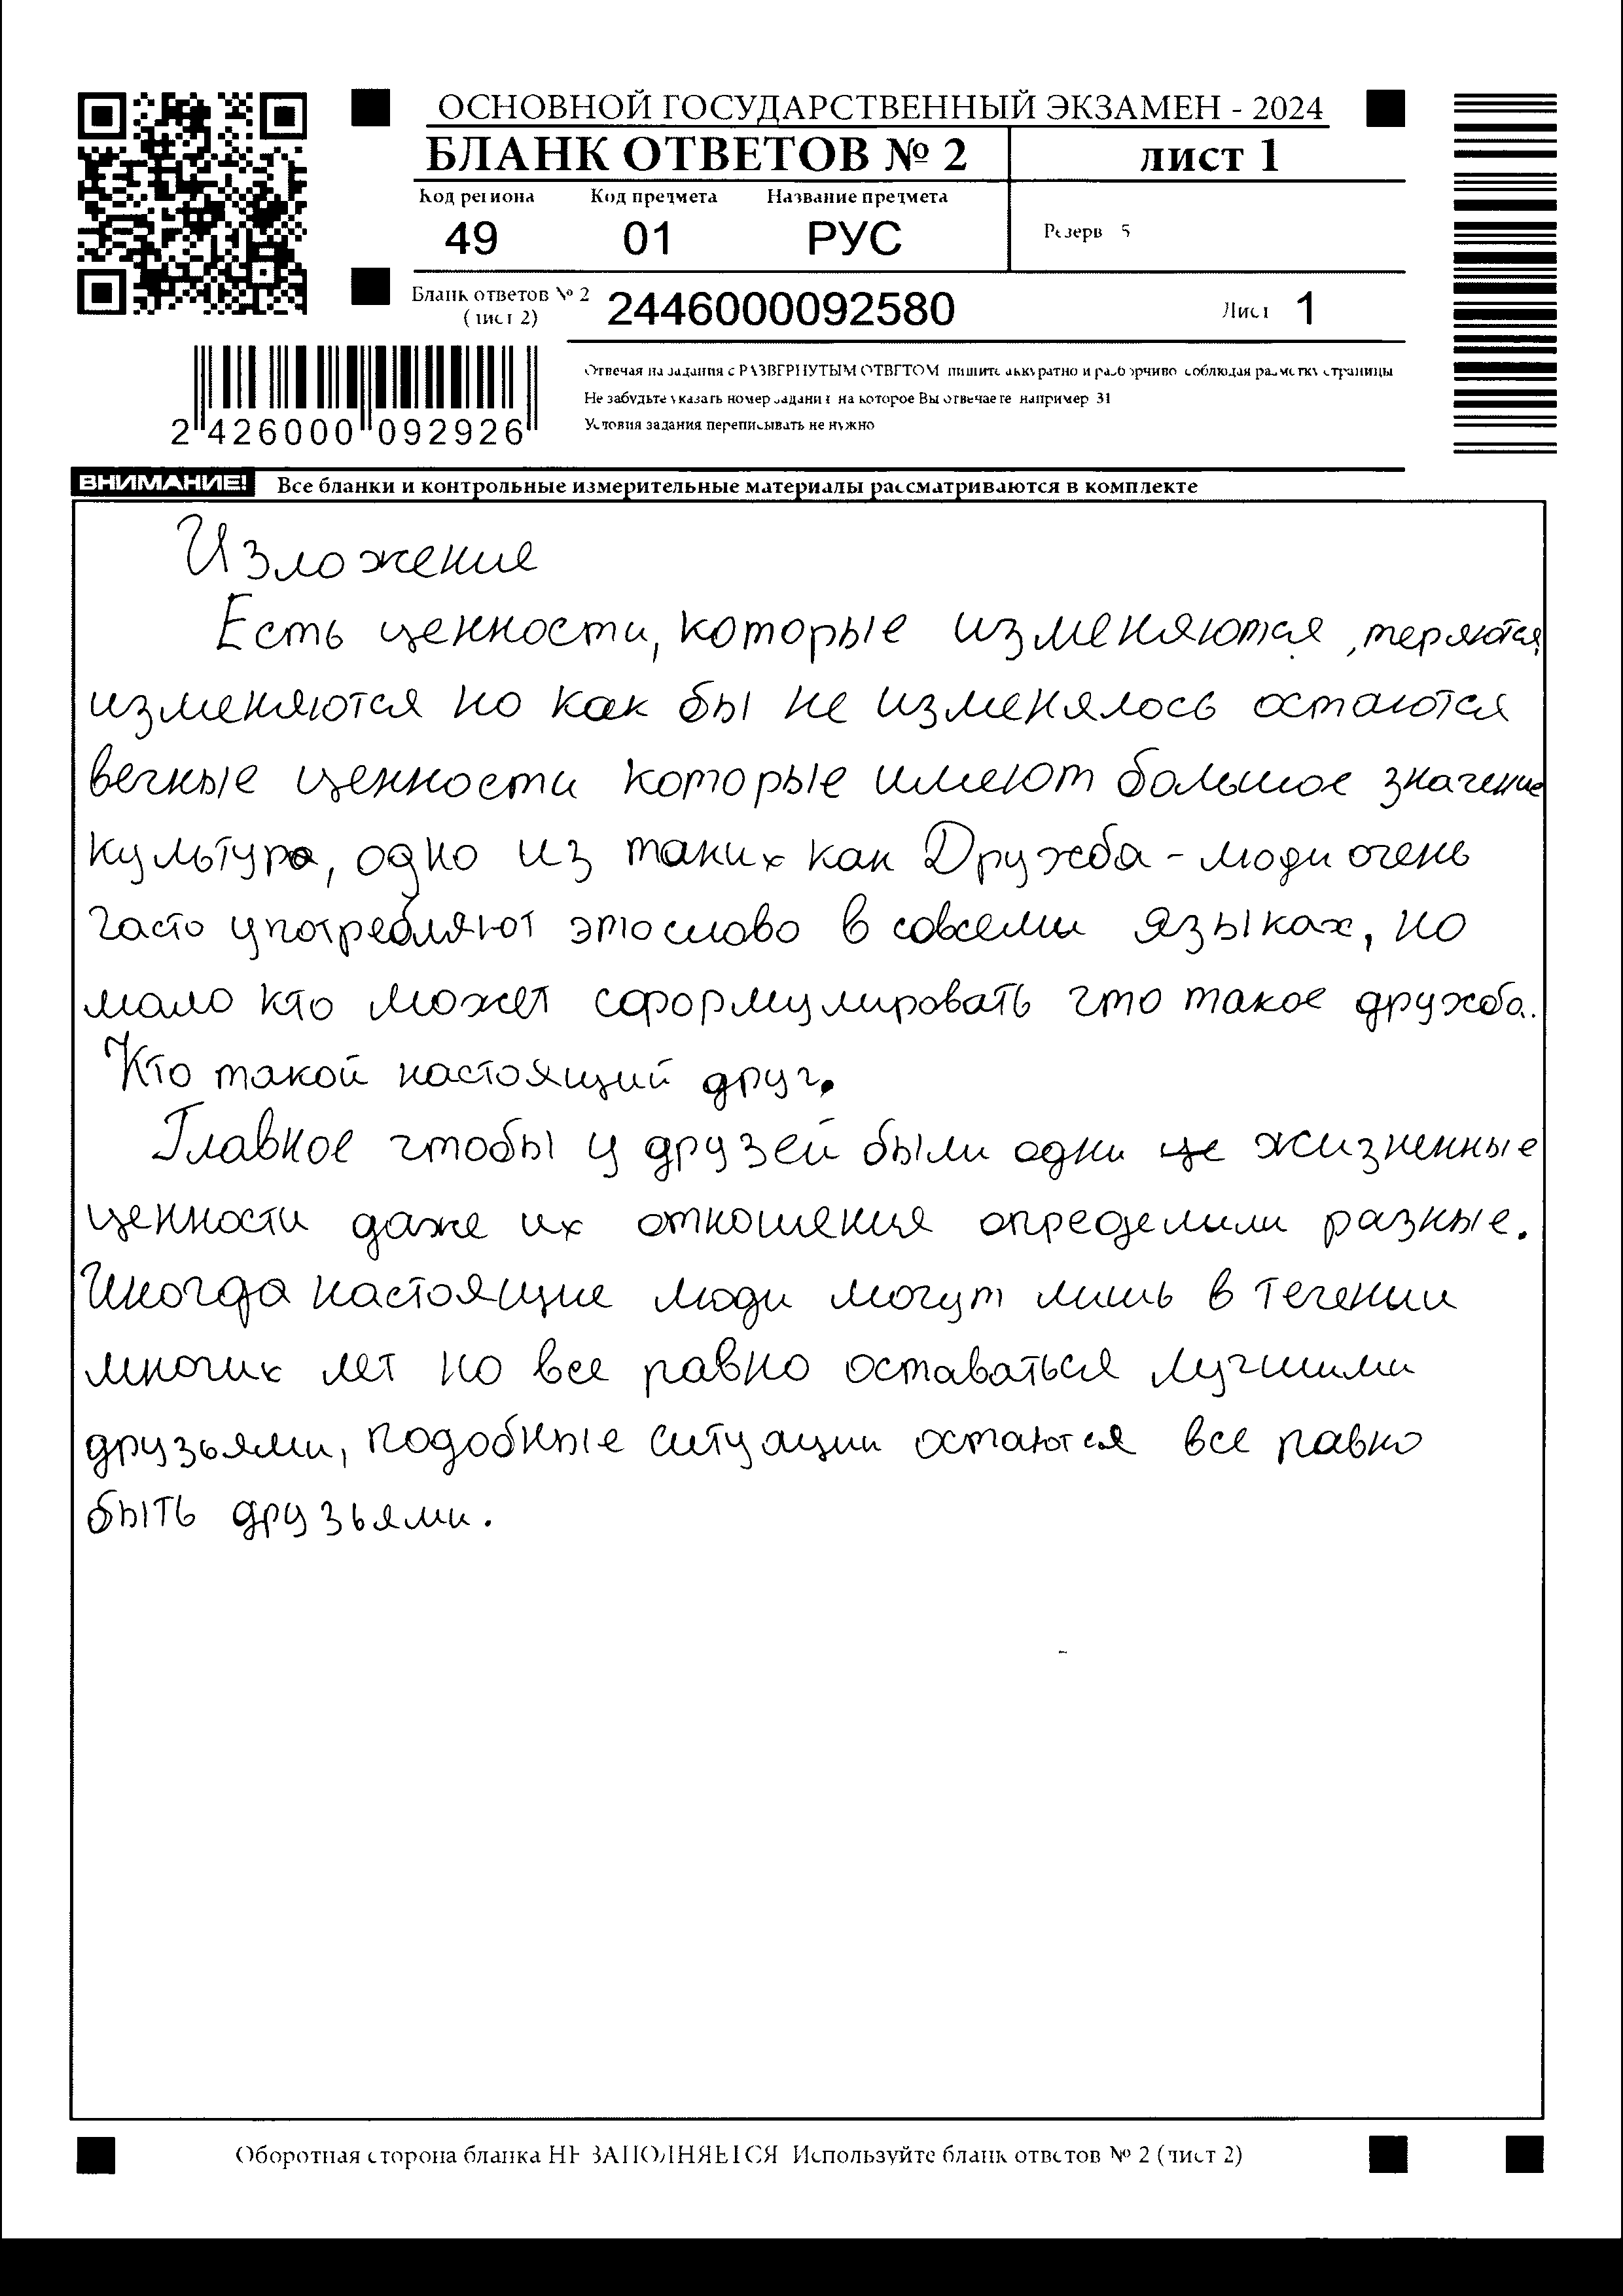 ОСНОВНОЙ ГОСУДАРСТВЕННЫЙ ЭКЗАМЕН - 2024
БЛАНК ОТВЕТОВ № 2 лист 1
Код региона Код предмета Название предмета
49 01 РУС Резерв 5
Бланк ответов № 2 (лист 2) 2446000092580 Лист 1
Отвечая на задания с РАЗВЕРНУТЫМ ОТВЕТОМ пишите аккуратно и разборчиво соблюдая разметку страницы
Не забудьте указать номер задания на которое Вы отвечаете например 31
Условия задания переписывать не нужно
2 426000 092926
ВНИМАНИЕ! Все бланки и контрольные измерительные материалы рассматриваются в комплекте
Изложение
Есть ценности, которые изменяются, теряются,
изменяются но как бы не изменялось остаются
вечные ценности которые имеют большое значение
культура, одно из таких как Дружба - люди очень
часто употребляют это слово в совсеми языках, но
мало кто может сформулировать что такое дружба.
Кто такой настоящий друг.
Главное чтобы у друзей были одни це жизненные
ценности даже их отношения определили разные.
Иногда настоящие люди могут лишь в течении
многих лет но все равно оставаться лучшими
друзьями, подобные ситуации остаются все равно
быть друзьями.
Оборотная сторона бланка НЕ ЗАПОЛНЯЕТСЯ Используйте бланк ответов № 2 (лист 2)